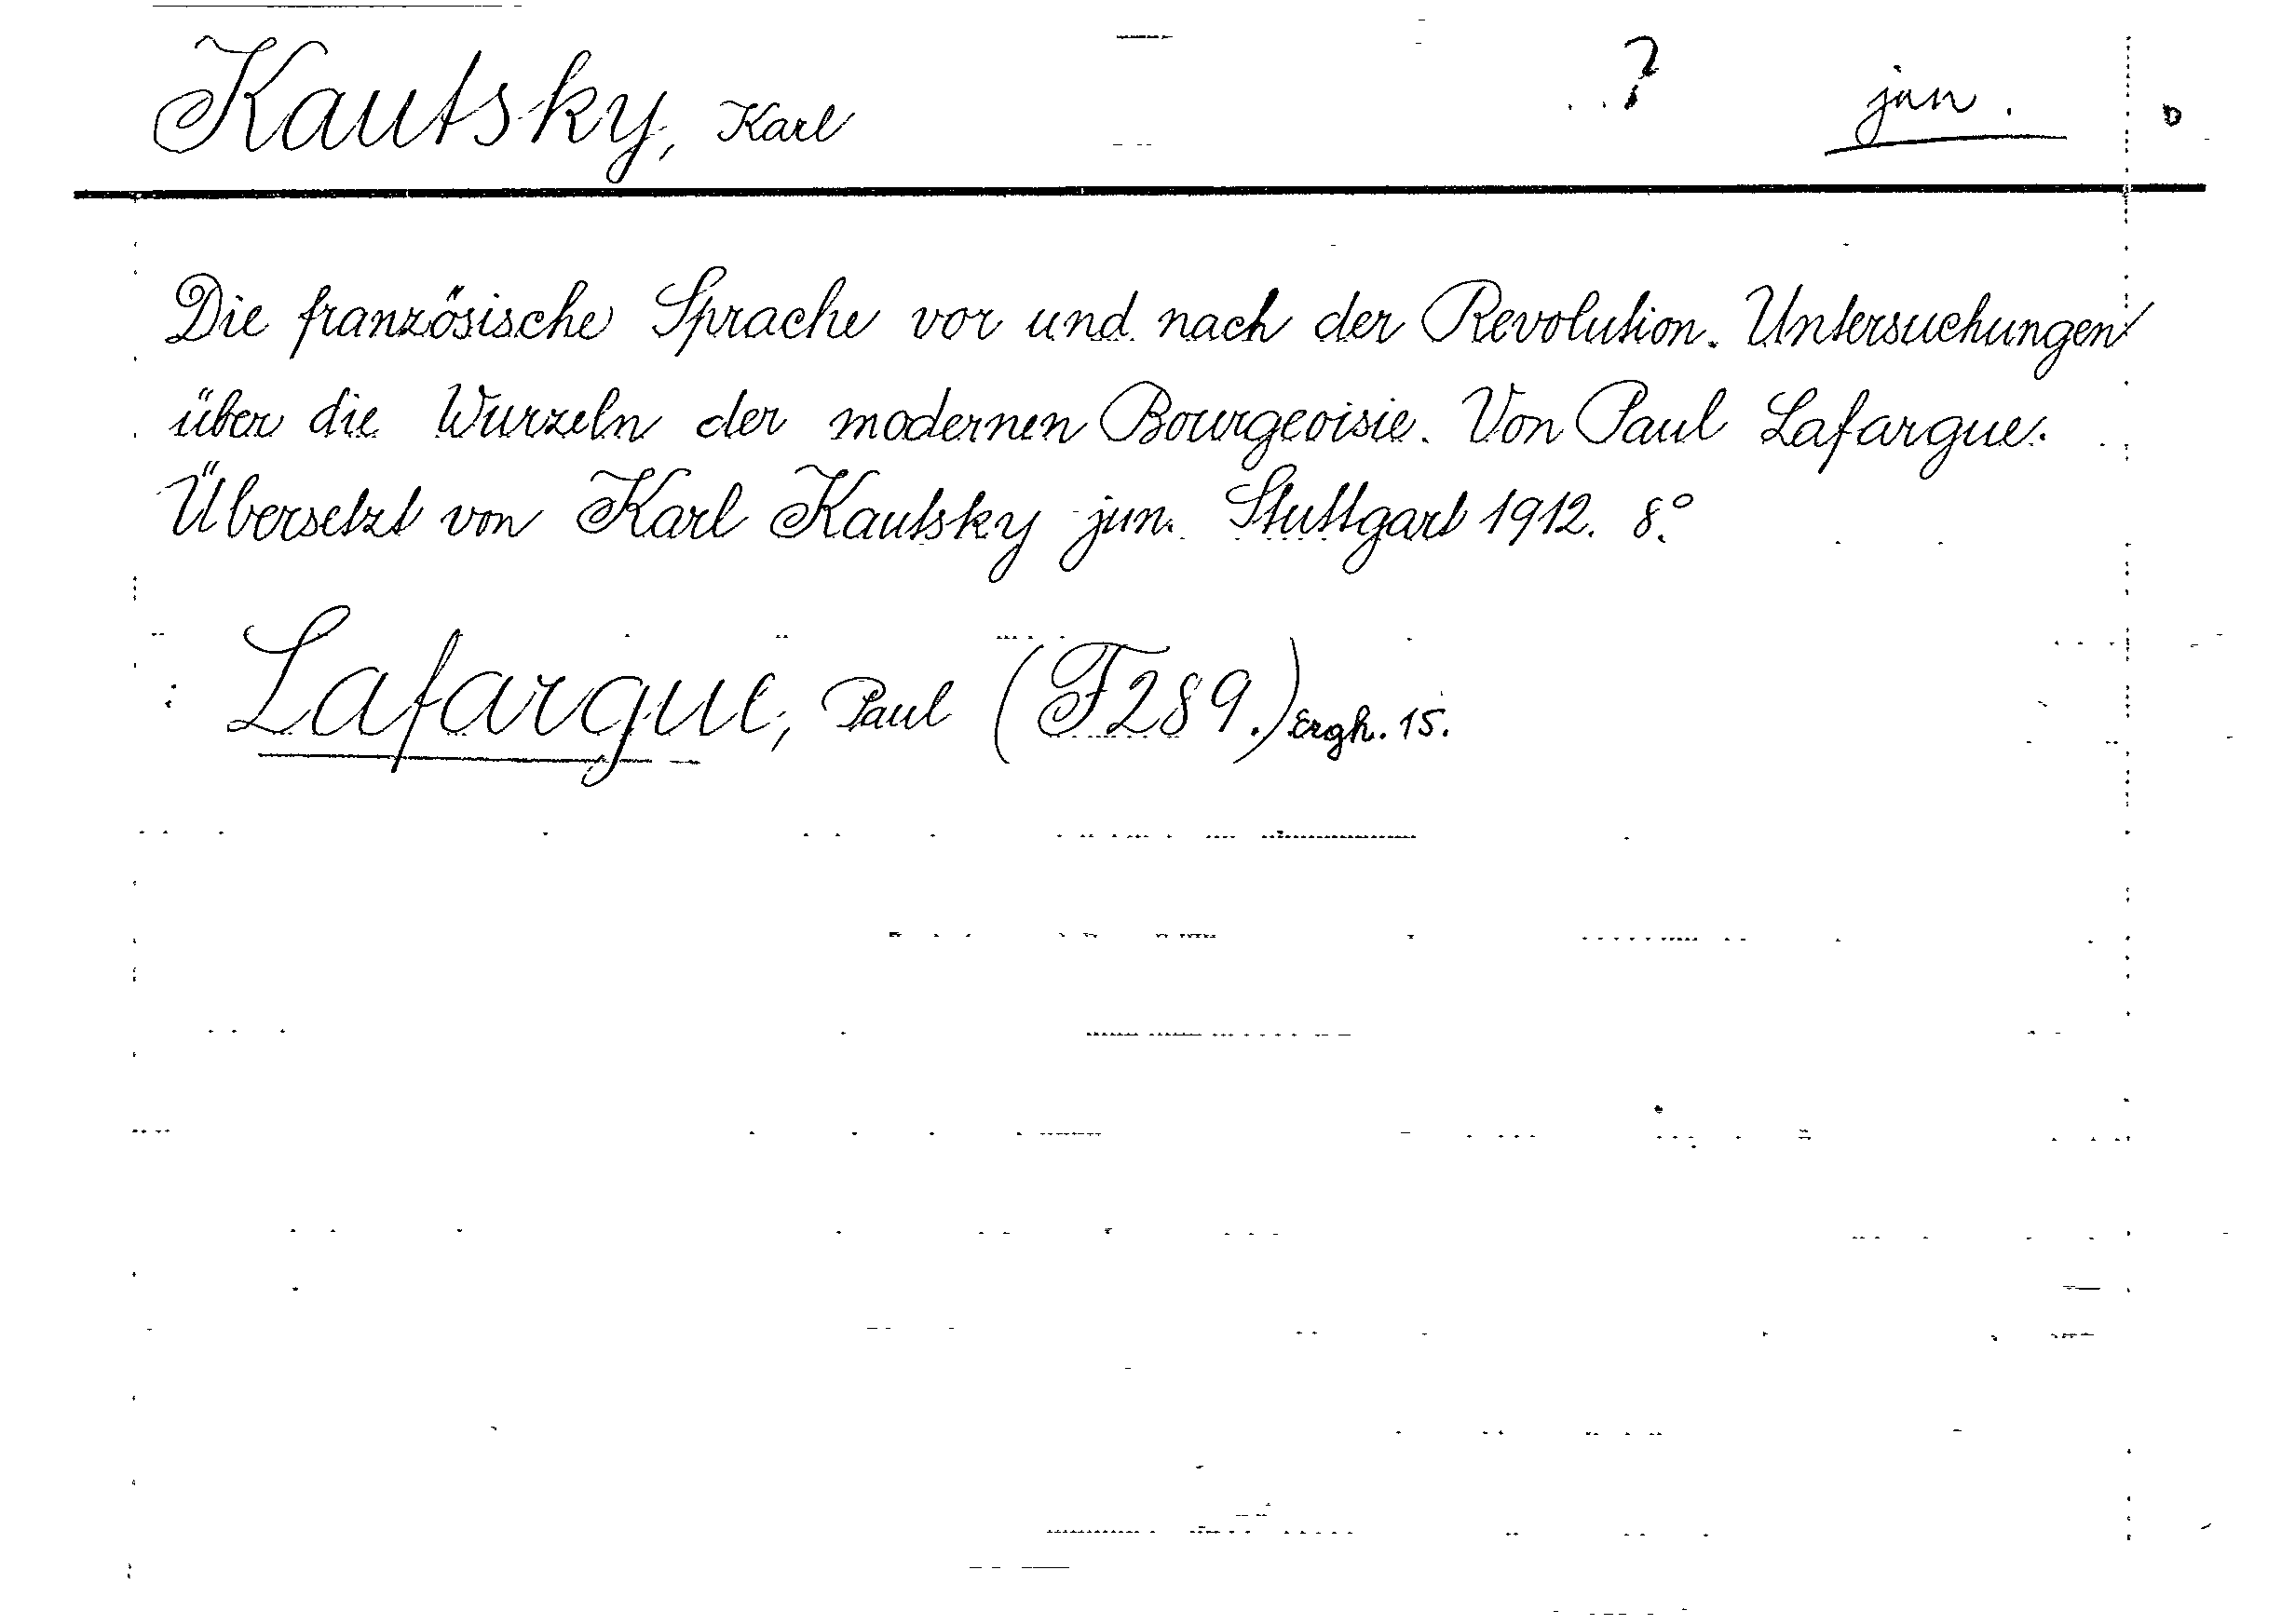 Kautsky, Karl ? jun.
Die französische Sprache vor und nach der Revolution. Untersuchungen
über die Wurzeln der modernen Bourgeoisie. Von Paul Lafargue.
Übersetzt von Karl Kautsky jun. Stuttgart 1912. 8°.
Lafargue, Paul (F289.) Ergh. 15.